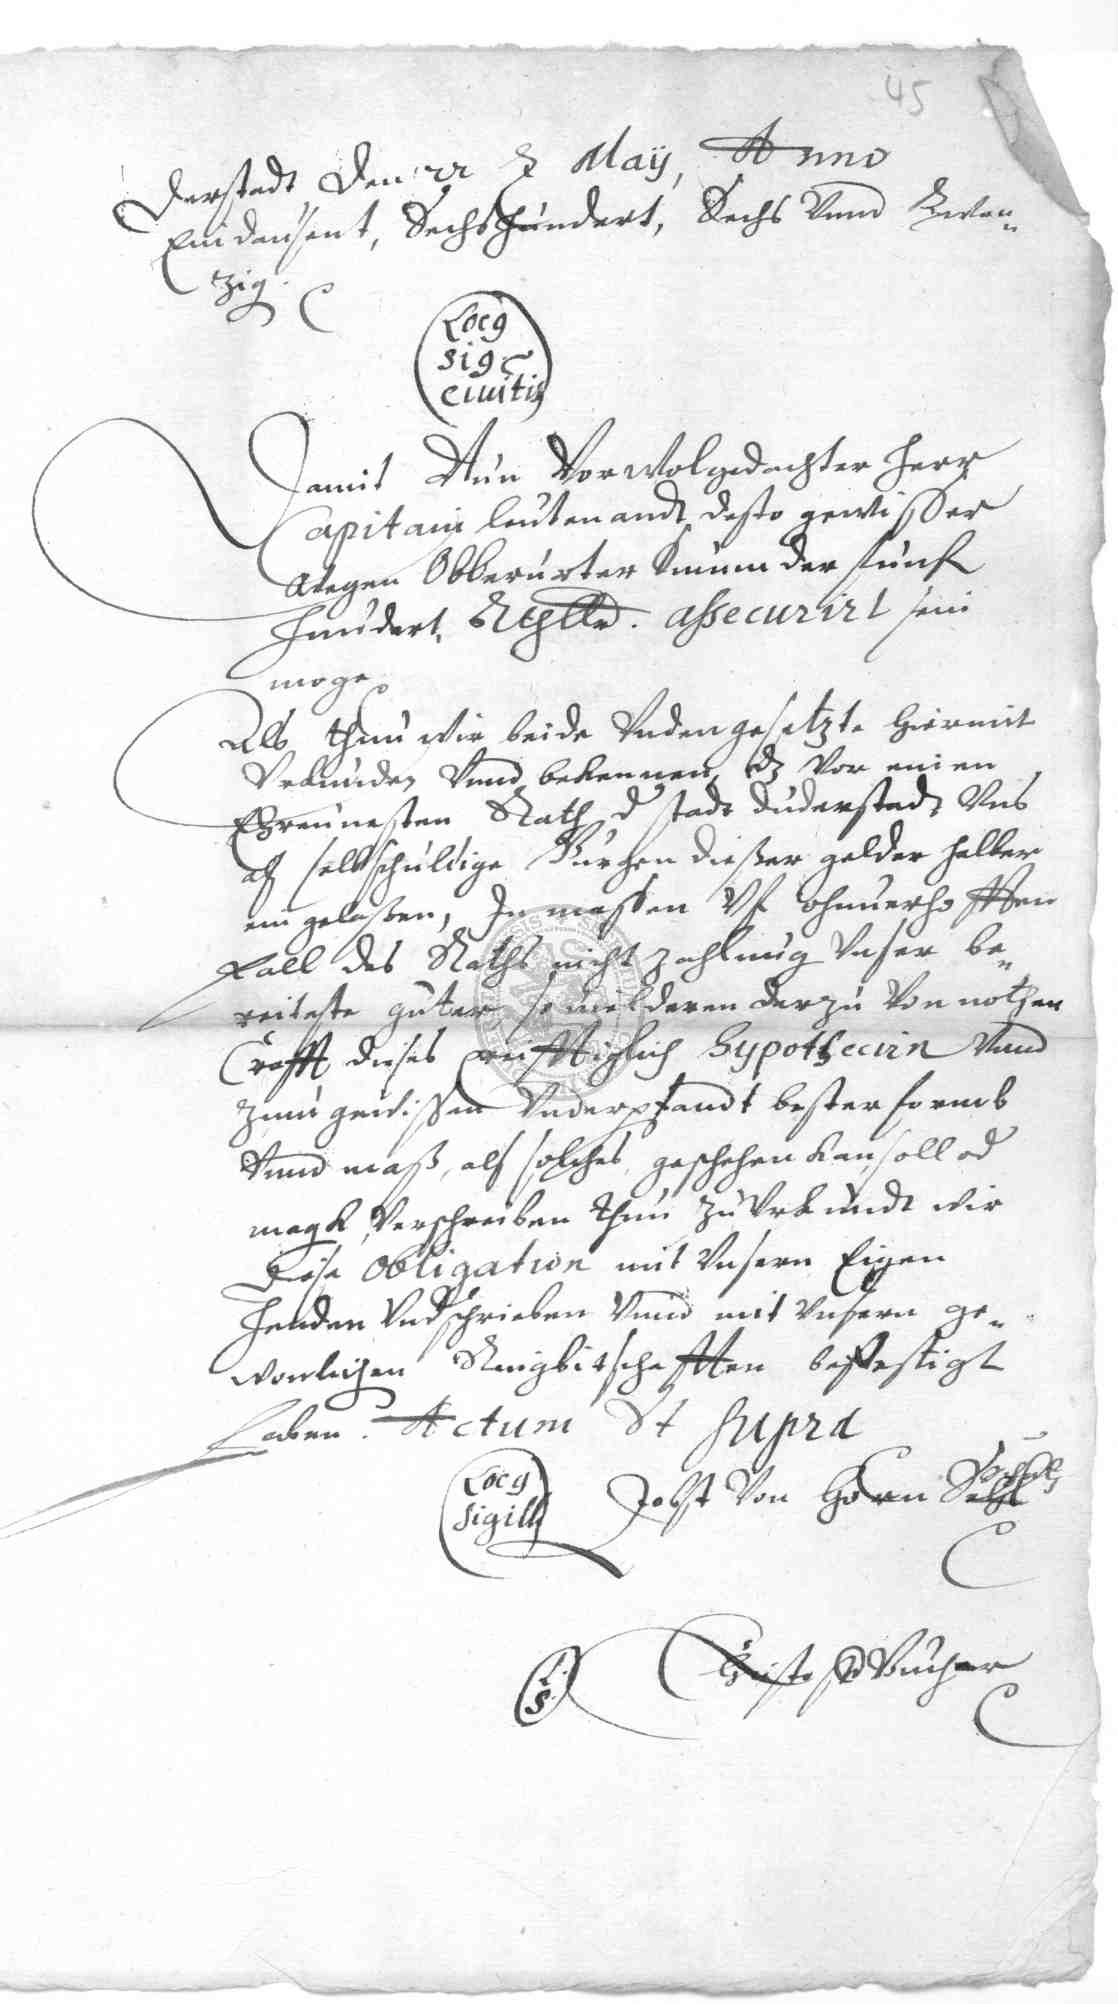 45
derstadt den 22 May, Anno
Ein dausent, Sechshundert, Sechs Vnnd Zwan„
zig.
Locg
sig.
Ciuitis
Damit Nun Vorwolgedachter Herr
Capitain leutenandt desto gewisser
wegen Obberurter Summ der funff
hundert Rthlr. assecurirt sein
moge
Als thun wir beide Vndengesetzte hiermit
Vrkunden Vnnd bekennen, dz Vor einen
Ehrnuesten Rath d Stadt Duderstadt Vns
alß selbschuldige Burgen dießer gelder halber
ein gelaßen, In massen Vf ohnuerhofften
Fall des Raths nicht zahlung Vnser be„
reiteste guter so viel deren darzu Von nothen
Crafft dieses Hypothecirn Vnnd
zum gewissen Vnderpfandt bester formb
Vnnd maß, alß solches geschehen kan, soll od
magk, Verschreiben thun zu Vrkundt wir
diese Obligation mit Vnsern Eigen
Henden Vndschrieben Vnnd mit Vnsern ge„
wonlichen Ringbitschafften befestigt
haben. Actum Vt supra
Locg
Sigilli
Jobst Von Horn
L.
S.
Christoff